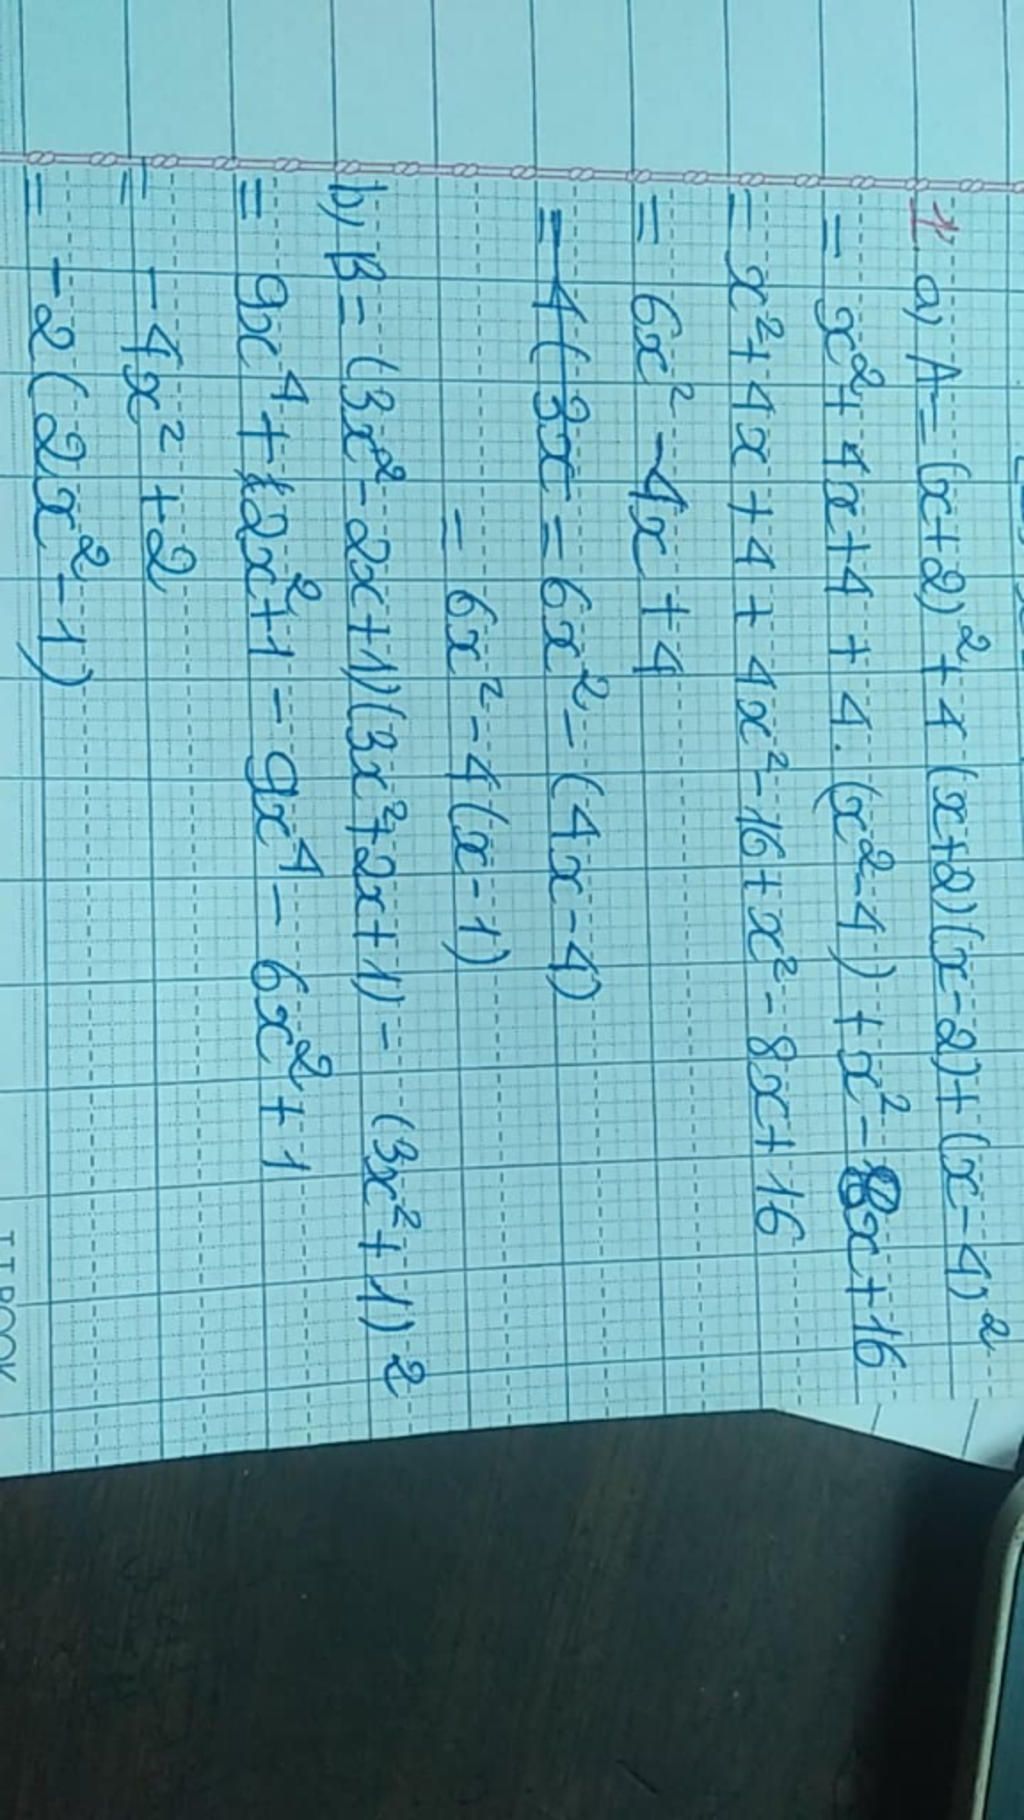 1. a) A = (x+2)² + 4(x+2)(x-2) + (x-4)²
= x² + 4x + 4 + 4.(x²-4) + x² - 8x + 16
= x² + 4x + 4 + 4x² - 16 + x² - 8x + 16
= 6x² - 4x + 4
= 4(3x = 6x² - (4x - 4)
= 6x² - 4(x - 1)
b) B = (3x² - 2x + 1)(3x² + 2x + 1) - (3x² + 1)²
= 9x⁴ + 2x² + 1 - 9x⁴ - 6x² + 1
= -4x² + 2
= -2(2x² - 1)